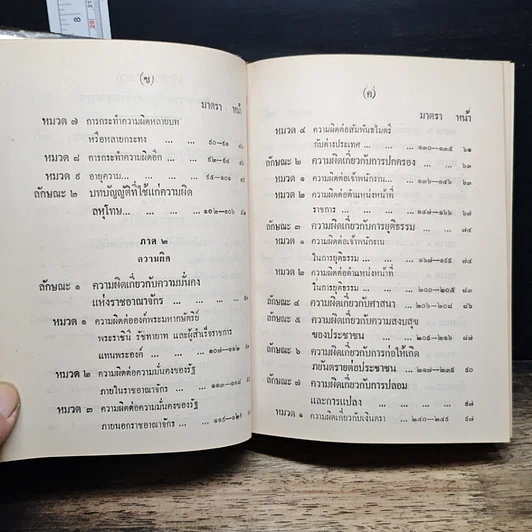 (ข)
มาตรา หน้า
หมวด ๗ การกระทำความผิดหลายบท
หรือหลายกระทง ... ... ๙๐–๙๑
หมวด ๘ การกระทำความผิดอีก ... ๙๒–๙๔
หมวด ๙ อายุความ... ... ... ๙๕–๑๐๑
ลักษณะ ๒ บทบัญญัติที่ใช้แก่ความผิด
ลหุโทษ... ... ... ... ๑๐๒–๑๐๖
ภาค ๒
ความผิด
ลักษณะ ๑ ความผิดเกี่ยวกับความมั่นคง
แห่งราชอาณาจักร ... ... ...
หมวด ๑ ความผิดต่อองค์พระมหากษัตริย์
พระราชินี รัชทายาท และผู้สำเร็จราชการ
แทนพระองค์ ... ... ๑๐๗–๑๑๒
หมวด ๒ ความผิดต่อความมั่นคงของรัฐ
ภายในราชอาณาจักร ... ๑๑๓–๑๑๘
หมวด ๓ ความผิดต่อความมั่นคงของรัฐ
ภายนอกราชอาณาจักร ... ๑๑๙–๑๒๙
(ค)
มาตรา หน้า
หมวด ๔ ความผิดต่อสัมพันธไมตรี
กับต่างประเทศ ... ... ๑๓๐–๑๓๕ ๖๑
ลักษณะ ๒ ความผิดเกี่ยวกับการปกครอง ... ... ๖๓
หมวด ๑ ความผิดต่อเจ้าพนักงาน... ... ๑๓๖–๑๔๖ ๖๓
หมวด ๒ ความผิดต่อตำแหน่งหน้าที่
ราชการ ... ... ... ๑๔๗–๑๖๖
ลักษณะ ๓ ความผิดเกี่ยวกับการยุติธรรม ... ... ๗๔
หมวด ๑ ความผิดต่อเจ้าพนักงาน
ในการยุติธรรม ... ... ๑๖๗–๑๙๙ ๗๔
หมวด ๒ ความผิดต่อตำแหน่งหน้าที่
ในการยุติธรรม ... ... ๒๐๐–๒๐๕ ๘๓
ลักษณะ ๔ ความผิดเกี่ยวกับศาสนา ... ๒๐๖–๒๐๘ ๘๖
ลักษณะ ๕ ความผิดเกี่ยวกับความสงบสุข
ของประชาชน ... ... ๒๐๙–๒๑๖
ลักษณะ ๖ ความผิดเกี่ยวกับการก่อให้เกิด
ภยันตรายต่อประชาชน ... ๒๑๗–๒๓๙
ลักษณะ ๗ ความผิดเกี่ยวกับการปลอม
และการแปลง ... ... ... ... ๙๗
หมวด ๑ ความผิดเกี่ยวกับเงินตรา ... ๒๔๐–๒๔๙ ๙๗